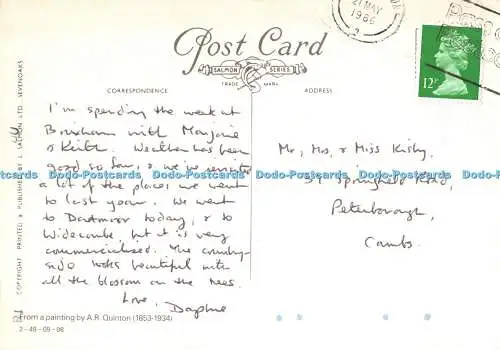 Post Card
SALMON SERIES
TRADE MARK
CORRESPONDENCE
ADDRESS
21 MAY
1986
12P
I'm spending the week at
Brixham with Marjorie
& Keith. Weather has been
good so far, & we've revisited
a lot of the places we went
to last year. We went
to Dartmoor today, & to
Widecombe, but it is very
commercialised. The country-
side looks beautiful with
all the blossom on the trees.
Love,
Daphne
Mr, Mrs, & Miss Kisby,
Springfield Road,
Peterborough,
Cambs.
COPYRIGHT PRINTED & PUBLISHED BY J. SALMON LTD. SEVENOAKS
From a painting by A.R. Quinton (1853-1934)
2-48-09-08
Dodo-Postcards Dodo-Postcards Dodo-Postcards Dodo-Postcards Dodo-Postcards Dodo-Postcards